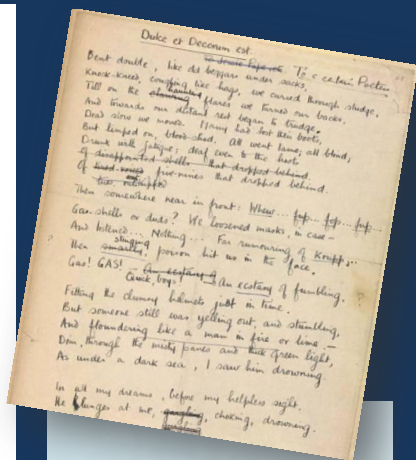 Dulce et Decorum est.
To Jessie Pope etc. To a certain Poetess
Bent double, like old beggars under sacks,
Knock-kneed, coughing like hags, we cursed through sludge,
Till on the clawing haunting flares we turned our backs,
And towards our distant rest began to trudge.
Dead slow we moved. Many had lost their boots,
But limped on, blood-shod. All went lame; all blind;
Drunk with fatigue; deaf even to the hoots
Of disappointed shells that dropped behind.
Of tired five-nines that dropped behind.
Then somewhere near in front: Whew... fup... fop... fup...
Gas-shells or duds? We loosened masks, in case –
And listened... Nothing... Far rumouring of Krupp...
stinging
Then smartly, poison hit us in the face.
Gas! GAS! An ecstasy of
Quick, boys! An ecstasy of fumbling,
Fitting the clumsy helmets just in time.
But someone still was yelling out, and stumbling,
And floundering like a man in fire or lime. –
Dim, through the misty panes and thick green light,
As under a dark sea, I saw him drowning.
In all my dreams, before my helpless sight,
He plunges at me, gargling, choking, drowning.